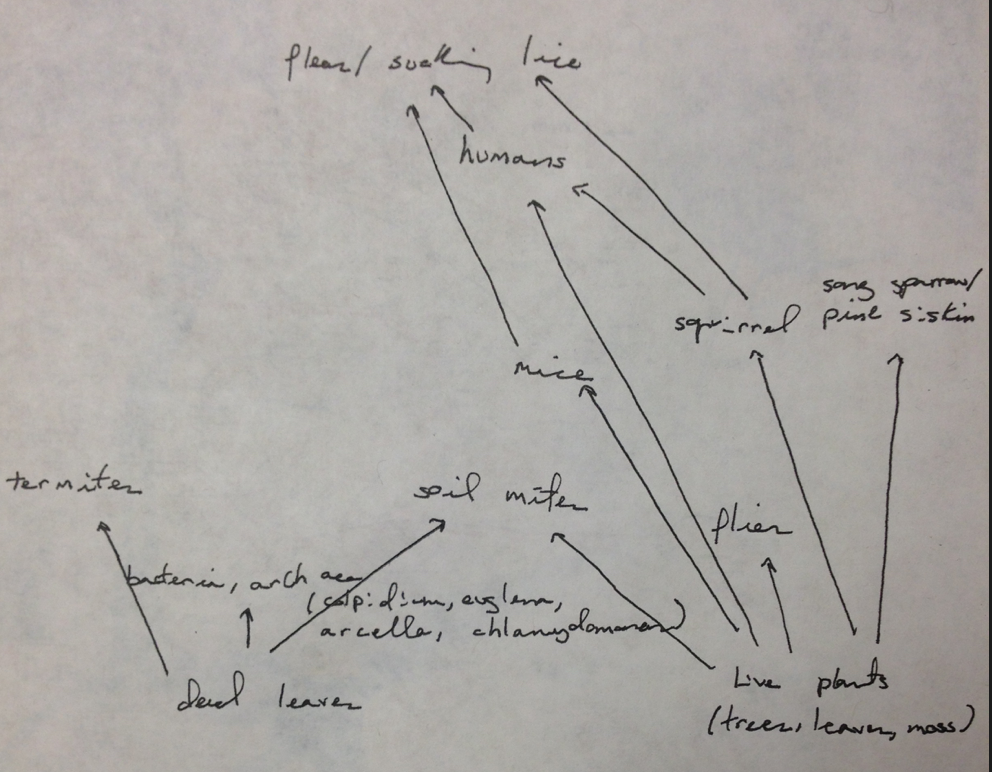 fleas/ sucking lice
humans
song sparrow/
squirrel pine siskin
mice
termites
soil mites
flies
bacteria, archaea
(colpidium, euglena,
arcella, chlamydomonas)
dead leaves
Live plants
(trees, leaves, moss)